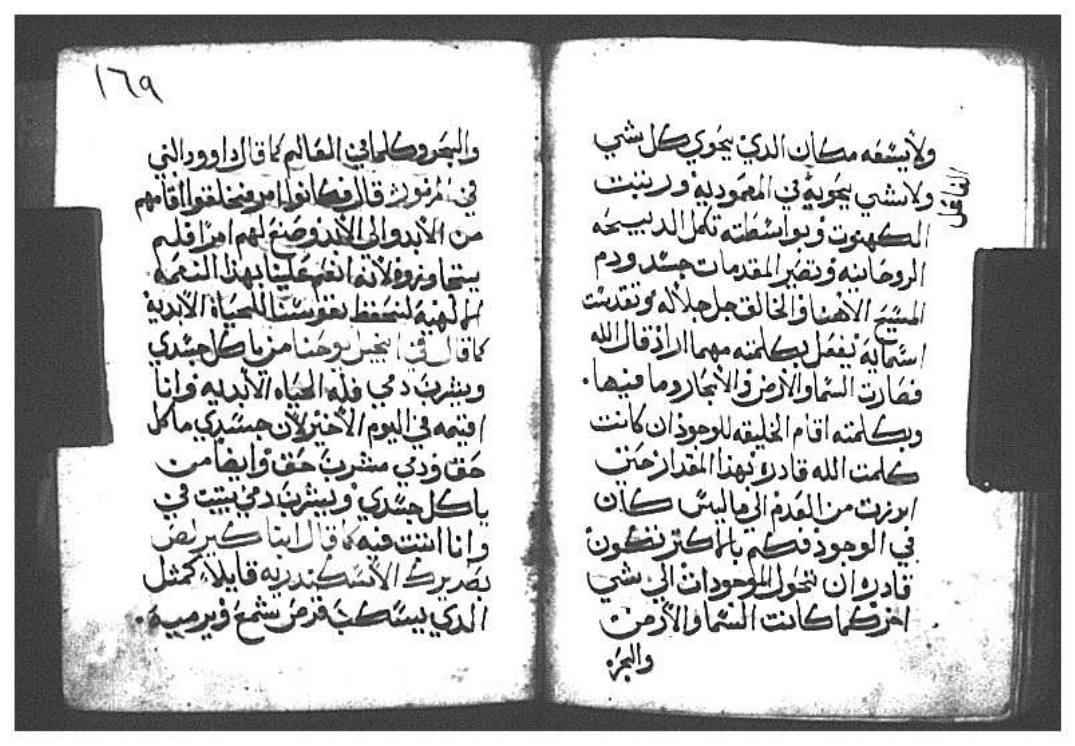 ولا يسعه مكان الدي يحوي كل شي
ولا شي يحويه في المعموديه ورتبت
الكهنوت وبواسطته تكمل الدبيحه
الروحانيه وتصير المقدمات جسد ودم
المسيح الاهنا والخالق جل جلاله وتقدست
اسمايه يفعل بكلمته مهما اراد قال الله
فصارت السما والارض والابحار وما فيها.
وبكلمته اقام الخليقه للوجود ان كانت
كلمت الله قادره بهدا المقدار حتي
ابرزت من العدم الي ما ليس كان
في الوجود فكم بالاكثر تكون
قادره ان تحول الموجودات الي شي
اخر كما كانت السما والارض
والبحر.
١٦٩
والبحر وكلما في العالم كما قال داوود النبي
في قال فكانوا امر فخلقوا اقامهم
من الابد والي الابد وصنع لهم امرا فلم
يتجاوزوه لانه انعم علينا بهدا النعمه
الالهيه لتحفظ نفوسنا للحياة الابدية
كما قال في انجيل يوحنا من ياكل جسدي
ويشرب دمي فله الحياه الابديه وانا
اقيمه في اليوم الاخير لان جسدي ماكل
حق ودمي مشرب حق وايضا من
ياكل جسدي ويشرب دمي يتبت في
وانا اتبت فيه كما قال ابنا كيرلص
بطريرك الاسكندريه قايلا كمثل
الدي يسكب قرص شمع ويرميه.